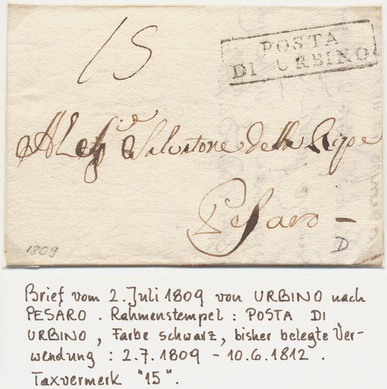 15
POSTA
DI URBINO
Salvatore della Ripe
Pesaro -
1809
D
Brief vom 2. Juli 1809 von URBINO nach
PESARO. Rahmenstempel: POSTA DI
URBINO, Farbe schwarz, bisher belegte Ver-
wendung: 2.7.1809 - 10.6.1812.
Taxvermerk "15".